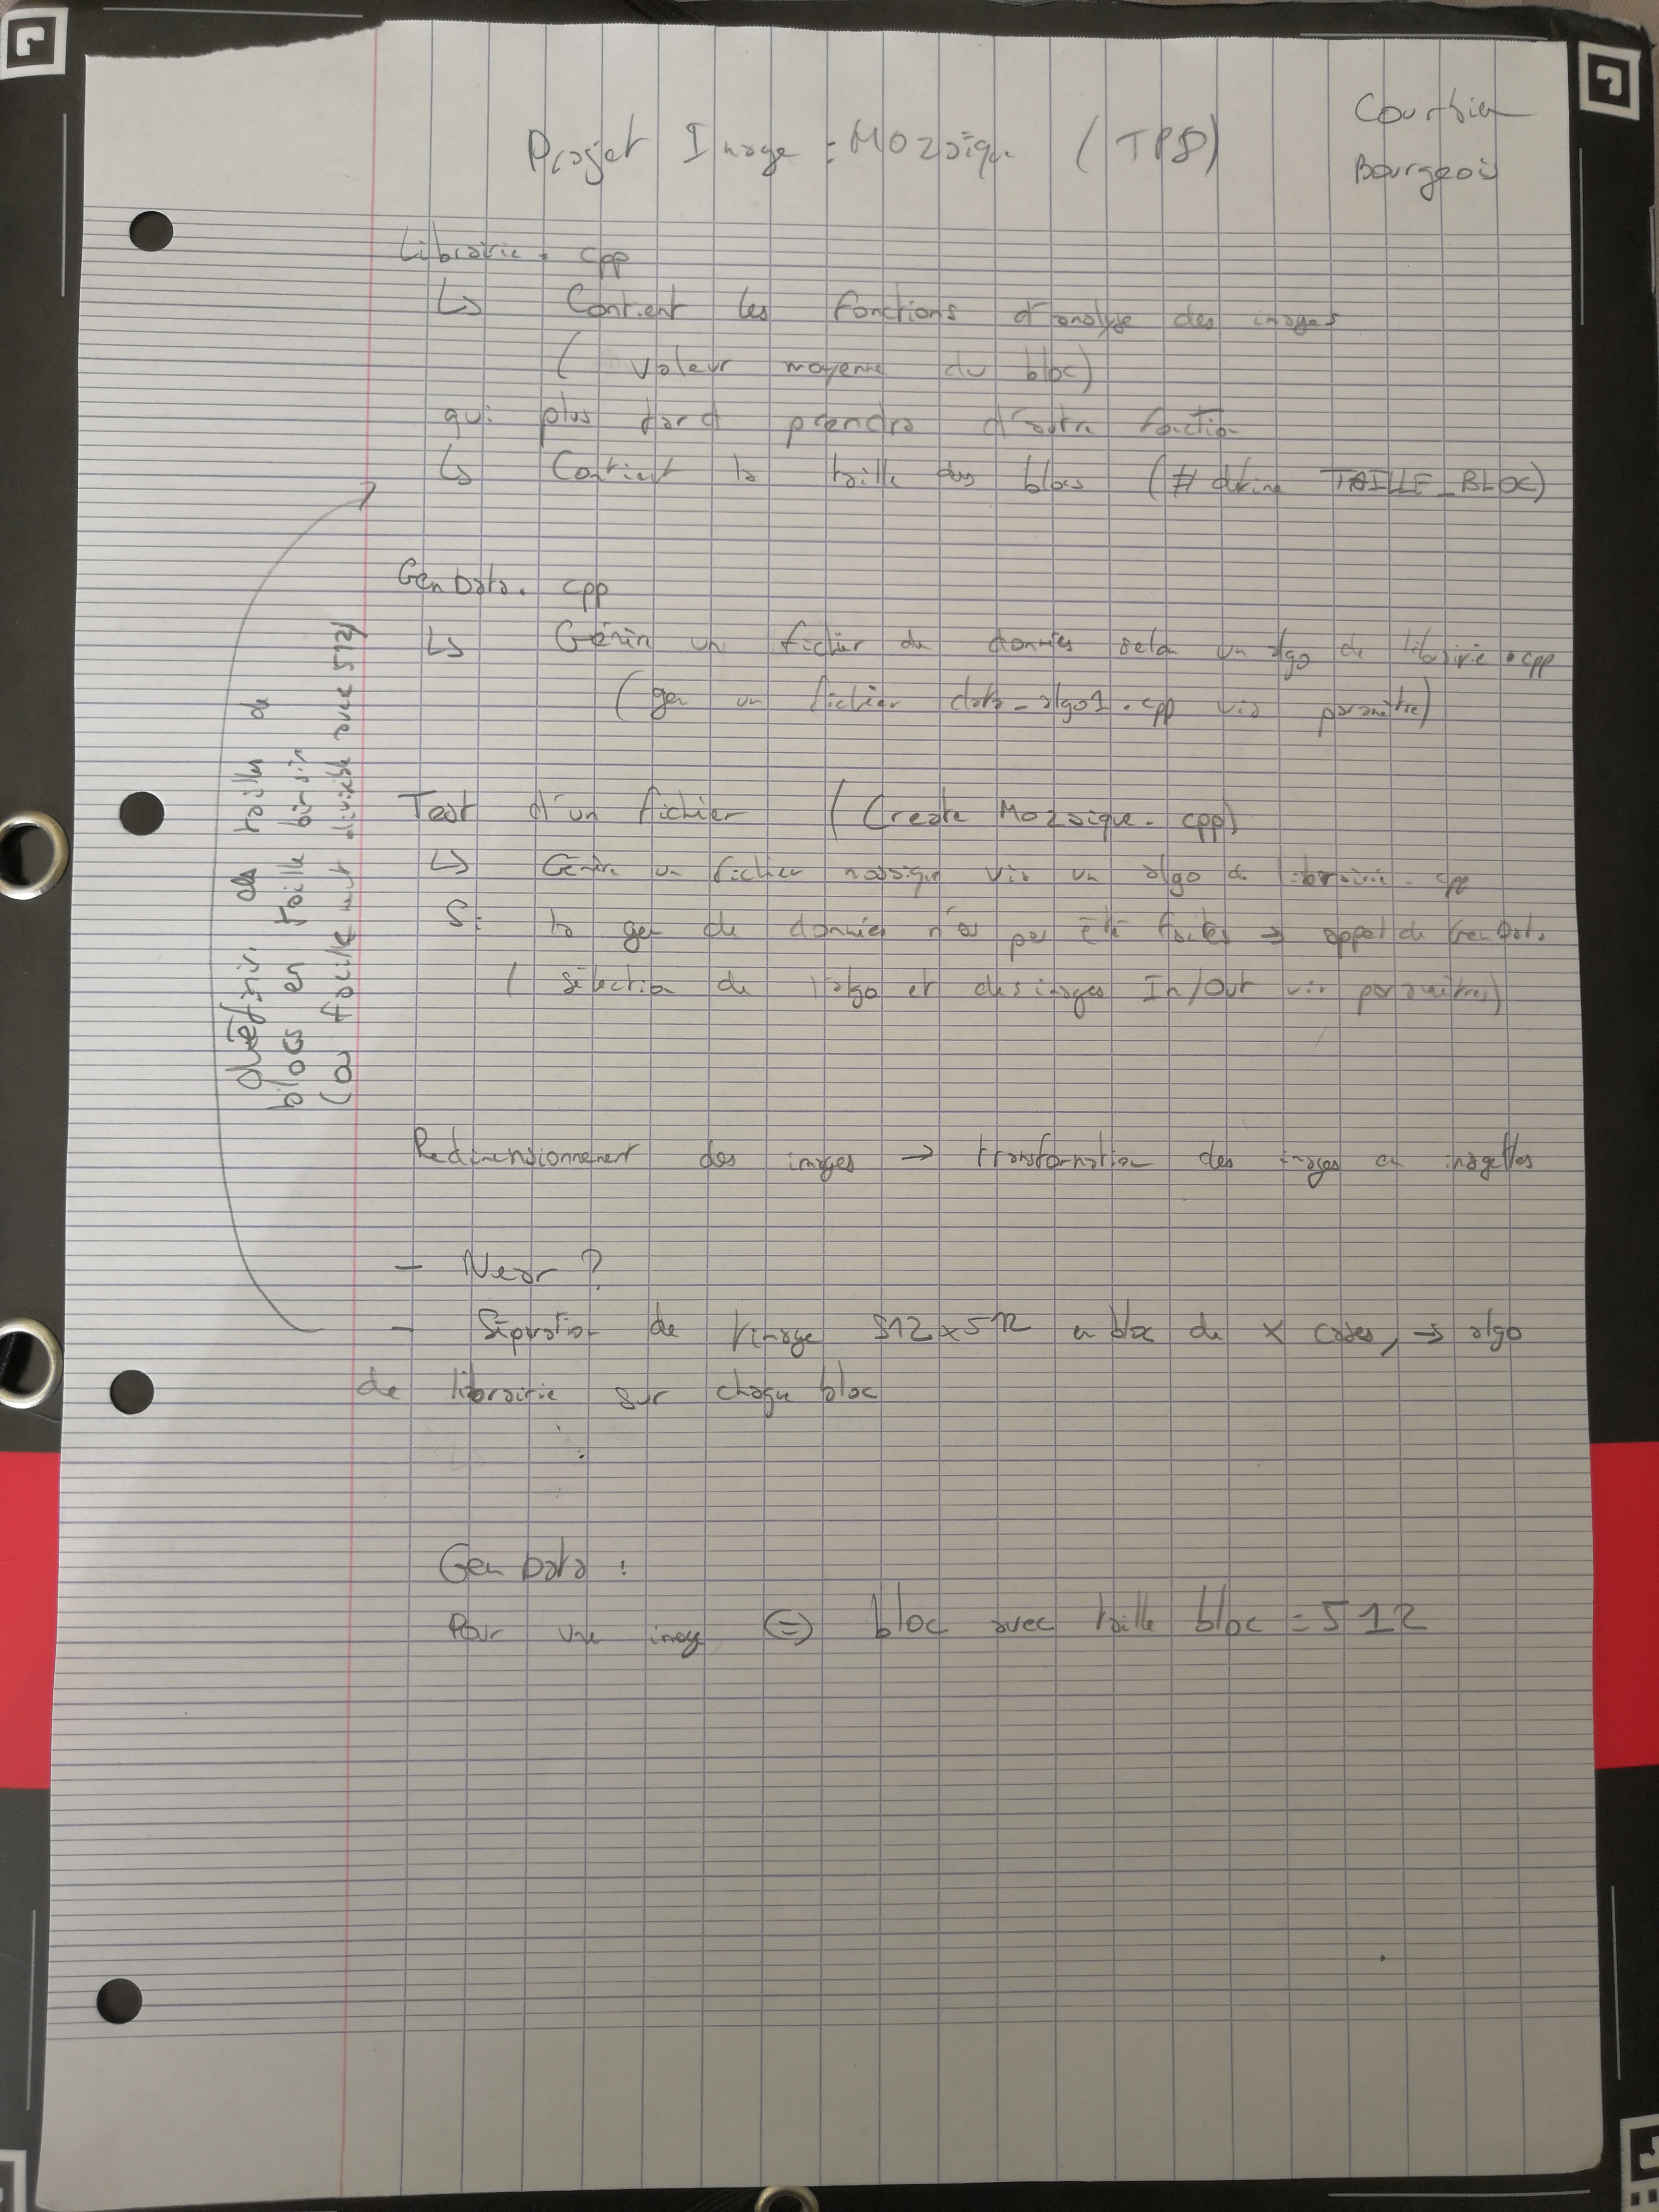 Projet Image : Mozaïque (TP8)
Courbier
Bourgeois
Librairie.cpp
↳ Contient les fonctions d'analyse des images
( valeur moyenne du bloc)
qui plus tard prendra d'autre fonction
↳ Contient la taille des blocs (# define TAILLE_BLOC)
GenData.cpp
↳ Génère un fichier de données selon un algo de librairie.cpp
(gen un fichier data_algo1.cpp via paramètre)
Test d'un fichier (Create Mozaique.cpp)
↳ Génère un fichier mosaique via un algo de librairie.cpp
Si la gen de données n'a pas été faites → appel de GenData
( sélection de l'algo et des images In/Out via paramètres)
définir des tailles de
blocs en taille
(ou facile divisible avec 512)
Redimensionnement des images → transformation des images en imagettes
- Near ?
- Séparation de l'image 512x512 en bloc de x cases, → algo
de librairie sur chaque bloc
Gen Data :
Pour une image ⇔ bloc avec taille bloc = 512